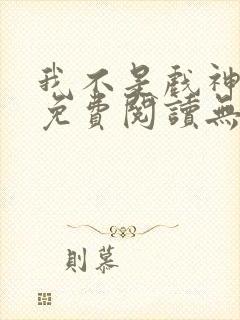 我不是戲神
免費閱讀無
則慕